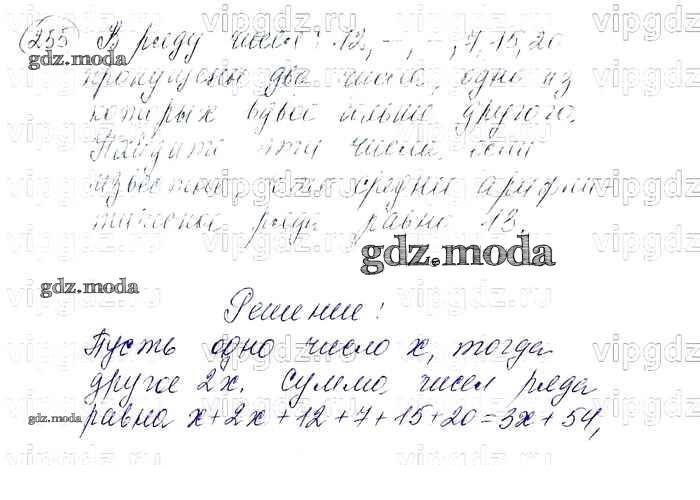 255 В ряду чисел: 12, _, _, 7, 15, 20
пропущены два числа, одно из
которых вдвое больше другого.
Найдите эти числа, если
известно, что средне арифме-
тическое ряда равно 13.
gdz.moda
gdz.moda
gdz.moda
Решение!
Пусть одно число x, тогда
другое 2x. Сумма чисел ряда
равна x+2x+12+7+15+20=3x+54,
gdz.moda
vipgdz